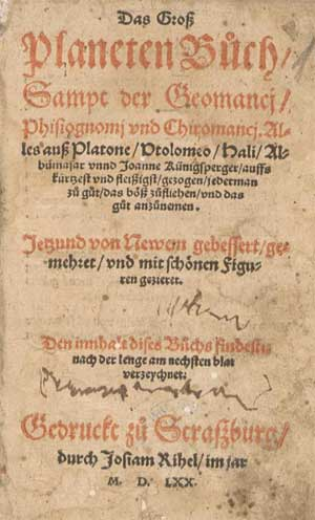 Das Groß
Planeten Bůch/
Sampt der Geomanci/
Phisiognomi vnd Chiromanci. Al-
les auß Platone/ Ptolomeo/ Hali/ Al-
bumasar vnnd Joanne Künigsperger/ auffs
kürtzest vnd fleißigst/ gezogen/ jederman
zů gůt/ das böß zůfliehen/ vnd das
gůt anzůnemen.
Jetzund von Newem gebessert/ ge-
mehret/ vnd mit schönen Figu-
ren gezieret.
Den innhalt dises Bůchs findestu
nach der lenge am nechsten blat
verzeychnet.
Gedruckt zů Straßburg/
durch Josiam Rihel/ im jar
M. D. LXX.